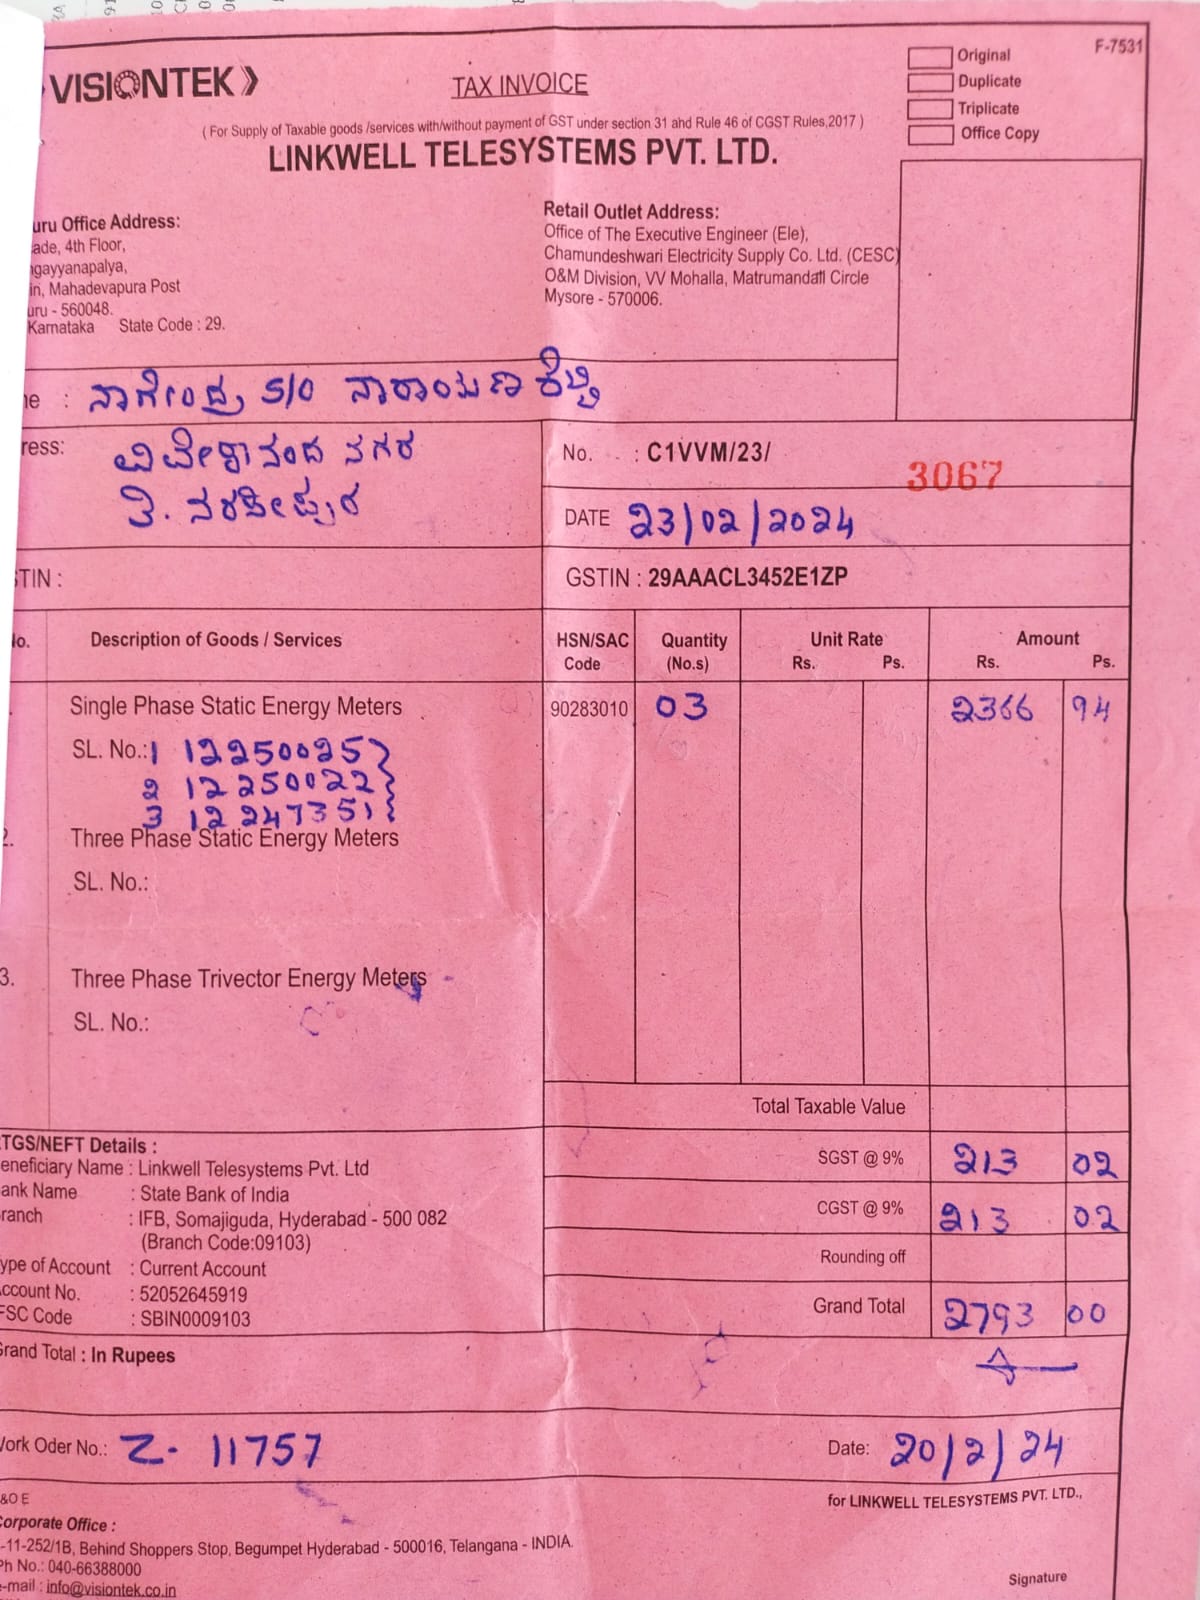 VISIONTEK
TAX INVOICE
F-7531
Original
Duplicate
Triplicate
Office Copy
( For Supply of Taxable goods /services with/without payment of GST under section 31 and Rule 46 of CGST Rules,2017 )
LINKWELL TELESYSTEMS PVT. LTD.
uru Office Address:
ade, 4th Floor,
ngayyanapalya,
in, Mahadevapura Post
uru - 560048.
Karnataka State Code : 29.
Retail Outlet Address:
Office of The Executive Engineer (Ele),
Chamundeshwari Electricity Supply Co. Ltd. (CESC)
O&M Division, VV Mohalla, Matrumandali Circle
Mysore - 570006.
ne : ನಾಗೇಂದ್ರ S/O ನಾರಾಯಣ ಶೆಟ್ಟಿ
ress: ವಿವೇಕಾನಂದ ನಗರ
ತಿ. ನರಸೀಪುರ
No. : C1VVM/23/ 3067
DATE 23/02/2024
TIN :
GSTIN : 29AAACL3452E1ZP
lo. Description of Goods / Services HSN/SAC Code Quantity (No.s) Unit Rate Rs. Ps. Amount Rs. Ps.
Single Phase Static Energy Meters 90283010 03 2366 94
SL. No.: 1 12250025
2 12250022
3 12247351
2. Three Phase Static Energy Meters
SL. No.:
3. Three Phase Trivector Energy Meters
SL. No.:
Total Taxable Value
TGS/NEFT Details :
eneficiary Name : Linkwell Telesystems Pvt. Ltd
ank Name : State Bank of India
ranch : IFB, Somajiguda, Hyderabad - 500 082
(Branch Code:09103)
ype of Account : Current Account
ccount No. : 52052645919
FSC Code : SBIN0009103
SGST @ 9% 213 02
CGST @ 9% 213 02
Rounding off
Grand Total 2793 00
Grand Total : In Rupees
Work Oder No.: Z- 11757
Date: 20/2/24
&O E
for LINKWELL TELESYSTEMS PVT. LTD.,
Corporate Office :
-11-252/1B, Behind Shoppers Stop, Begumpet Hyderabad - 500016, Telangana - INDIA.
Ph No.: 040-66388000
e-mail : info@visiontek.co.in
Signature